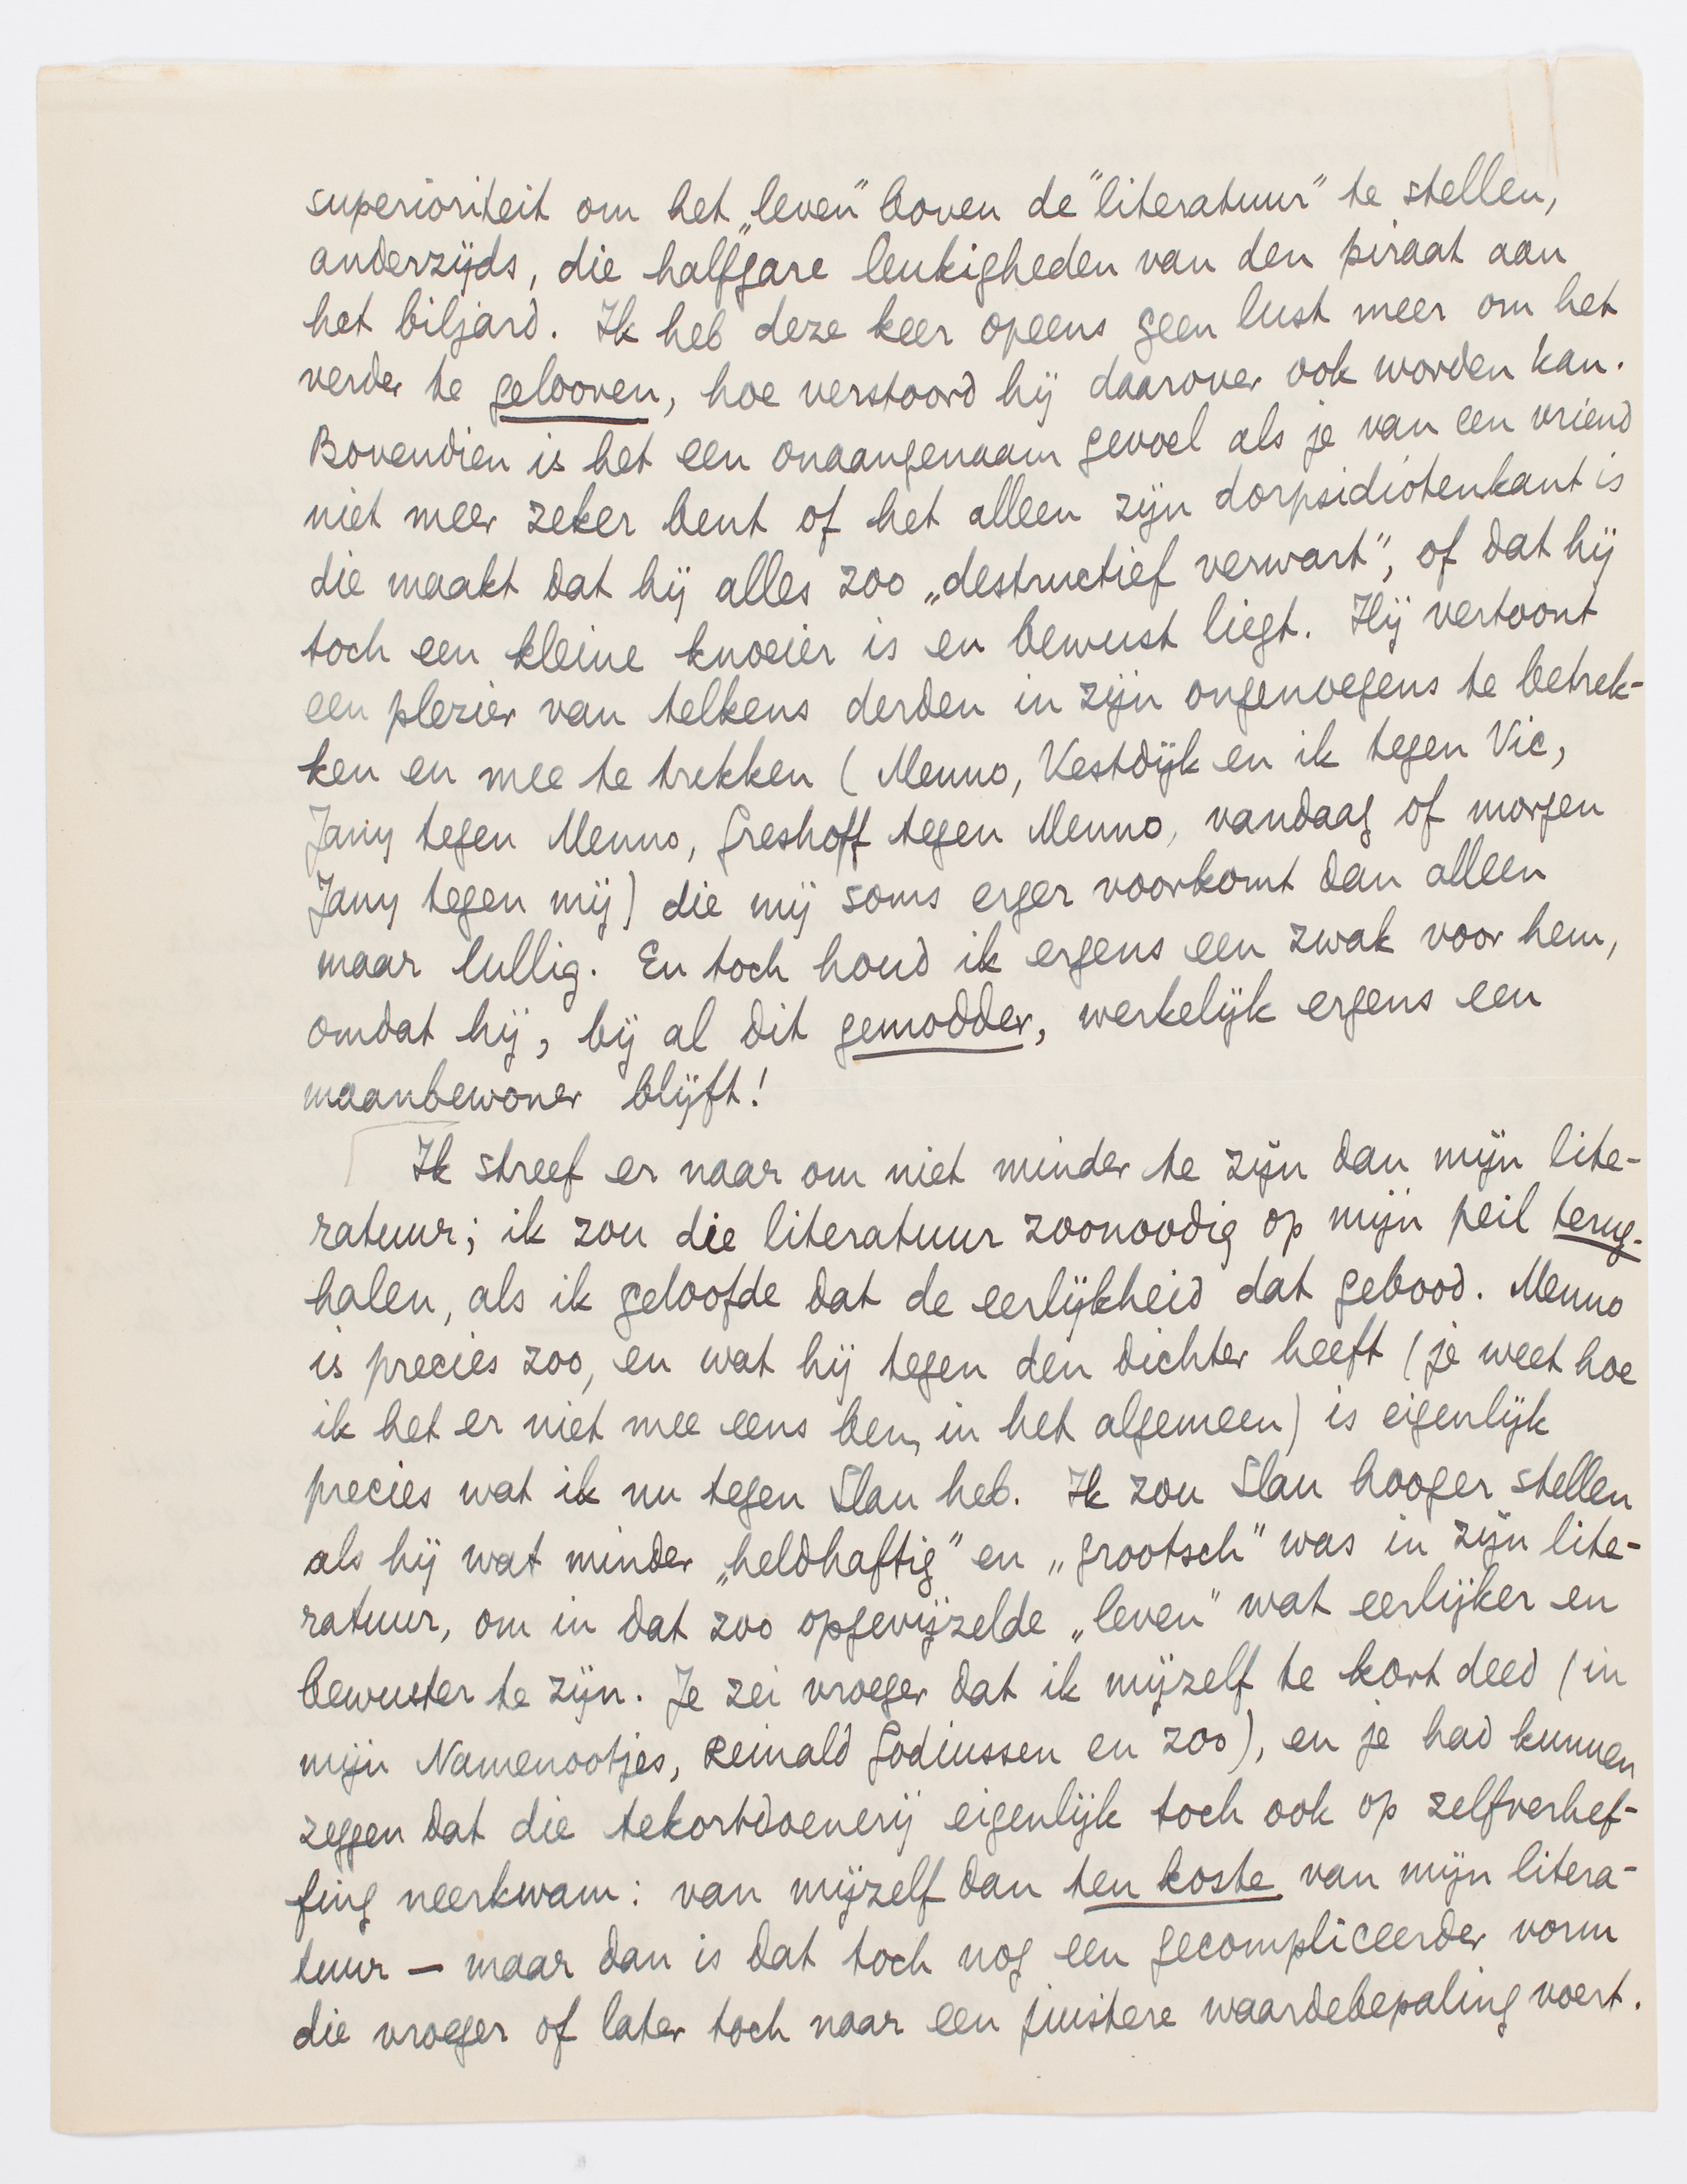 superioriteit om het „leven” boven de "literatuur" te stellen,
anderzijds, die halfgare leukigheden van den piraat aan
het biljard. Ik heb deze keer opeens geen lust meer om het
verder te gelooven, hoe verstoord hij daarover ook worden kan.
Bovendien is het een onaangenaam gevoel als je van een vriend
niet meer zeker bent of het alleen zijn dorpsidiotenkant is
die maakt dat hij alles zoo „destructief verwart”, of dat hij
toch een kleine knoeier is en bewust liegt. Hij vertoont
een plezier van telkens derden in zijn ongenoegens te betrek-
ken en mee te trekken (Menno, Vestdijk en ik tegen Vic,
Jany tegen Menno, Greshoff tegen Menno, vandaag of morgen
Jany tegen mij) die mij soms erger voorkomt dan alleen
maar lullig. En toch houd ik ergens een zwak voor hem,
omdat hij, bij al dit gemodder, werkelijk ergens een
maanbewoner blijft!
Ik streef er naar om niet minder te zijn dan mijn lite-
ratuur; ik zou die literatuur zoonoodig op mijn peil terug-
halen, als ik geloofde dat de eerlijkheid dat gebood. Menno
is precies zoo, en wat hij tegen den dichter heeft (je weet hoe
ik het er niet mee eens ben, in het algemeen) is eigenlijk
precies wat ik nu tegen Slau heb. Ik zou Slau hooger stellen
als hij wat minder „heldhaftig” en „grootsch” was in zijn lite-
ratuur, om in dat zoo opgevijzelde „leven” wat eerlijker en
bewuster te zijn. Je zei vroeger dat ik mijzelf te kort deed (in
mijn Namenootjes, Reinald Godiussen en zoo), en je had kunnen
zeggen dat die tekortdoenerij eigenlijk toch ook op zelfverhef-
fing neerkwam: van mijzelf dan ten koste van mijn litera-
tuur — maar dan is dat toch nog een gecompliceerder vorm
die vroeger of later toch naar een juistere waardebepaling voert.